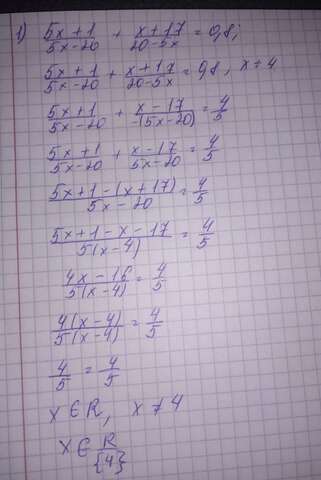 1) (5x + 1)/(5x - 20) + (x + 17)/(20 - 5x) = 0,8;
(5x + 1)/(5x - 20) + (x + 17)/(20 - 5x) = 0,8, x ≠ 4
(5x + 1)/(5x - 20) + (x - 17)/(-(5x - 20)) = 4/5
(5x + 1)/(5x - 20) + (x - 17)/(5x - 20) = 4/5
(5x + 1 - (x + 17))/(5x - 20) = 4/5
(5x + 1 - x - 17)/(5(x - 4)) = 4/5
(4x - 16)/(5(x - 4)) = 4/5
(4(x - 4))/(5(x - 4)) = 4/5
4/5 = 4/5
x ∈ R, x ≠ 4
x ∈ R/{4}